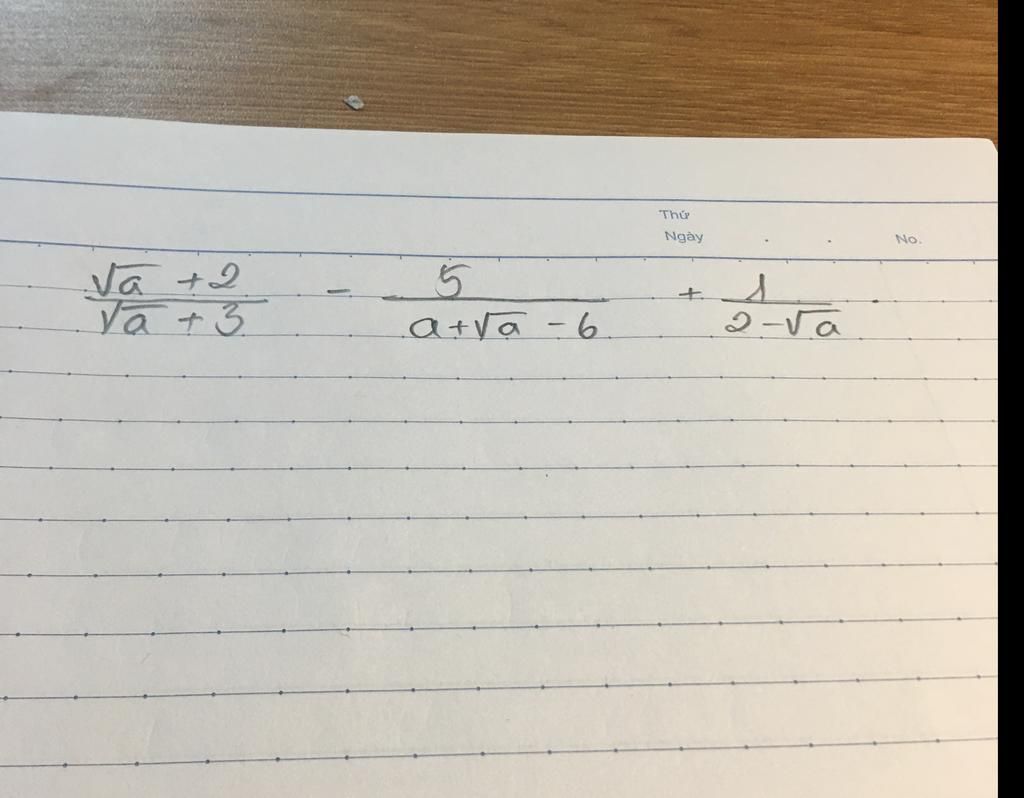 Thứ
Ngày . . No.
√a + 2 / √a + 3 - 5 / a + √a - 6 + 1 / 2 - √a .